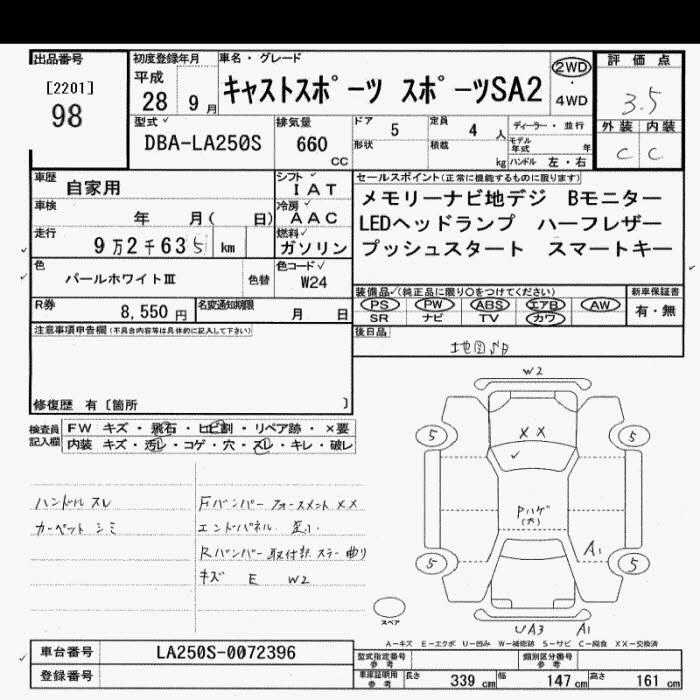 出品番号
[2201]
98
初度登録年月
平成
28 9月
車名・グレード
キャストスポーツ スポーツSA2
2WD
・
4WD
評価点
3.5
外装 内装
C C
型式✓
DBA-LA250S
排気量
660
CC
ドア
5
定員
4 人
ディーラー・並行
形状
積載
kg
モデル年式 年
ハンドル 左・右
車歴
自家用
シフト✓
IAT
車検
年 月( 日)
冷房✓
AAC
走行
9万2千635 km
燃料✓
ガソリン
色
パールホワイトⅢ
色替
色コード✓
W24
R券
8,550 円
名変通知期限
月 日
セールスポイント(正常に機能するものに限ります)
メモリーナビ地デジ Bモニター
LEDヘッドランプ ハーフレザー
プッシュスタート スマートキー
装備品✓(純正品に限り○をつけてください)
PS PW ABS エアB AW
SR ナビ TV カワ
新車保証書
有・無
後日品
地図SD
注意事項申告欄(不具合内容等は具体的に記入して下さい)
修復歴 有[箇所 ]
検査員記入欄
FW キズ・飛石・ヒビ割・リペア跡・×要
内装 キズ・汚レ・コゲ・穴・スレ・キレ・破レ
ハンドル スレ
カーペット シミ
Fバンパー フォースメント XX
エンドパネル 歪小
Rバンパー取付部 ステー曲り
キズ E W2
W2
5 5
X X
✓
Pハゲ
(大)
A1
5 5
スペア
UA3 A1
A-キズ E-エクボ U-凹み W-補修跡 S-サビ C-腐食 XX-交換済
車台番号
LA250S-0072396
登録番号
型式指定番号
参考
類別区分番号
参考
車庫証明用
参考
長さ 339 cm 幅 147 cm 高さ 161 cm